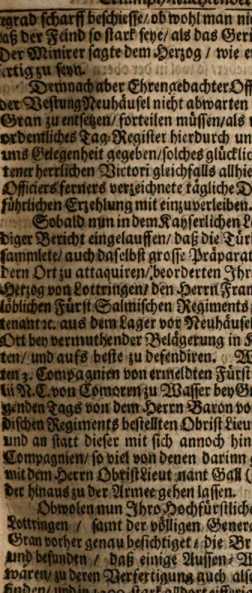 egrad scharff beschiesse/ob wohl man n
aß der Feind so starck seye/als das Geri
Der Minirer sagte dem Hertzog/wie e
ertig zu seyn.
Demnach aber Ehrengedachter Off
der Vestung Neuhäusel nicht abwarten
Gran zu entsetzen/forteilen müssen/als
ordentliches Tag-Register hierdurch un
uns Gelegenheit gegeben/solches glücklic
tener herrlichen Victori gleichfalls allhie
Officiers ferners verzeichnete tägliche D
führlichen Erzehlung mit einzuverleiben.
Sobald nun in dem Kayserlichen L
diger Bericht eingelauffen/daß die Tür
sammlete/auch daselbst grosse Präparat
dern Ort zu attaquiren/beorderten Ihr
Hertzog von Lottringen/den Herrn Fran
löblichen Fürst Salmischen Regiments
tenant ꝛc. aus dem Lager vor Neuhäuse
Ort bey vermuthender Belägerung in
ten/und aufs beste zu defendiren.
ten 3. Compagnien von ermeldten Fürst
von Comoren zu Wasser bey G
genden Tags von dem Herrn Baron vo
dischen Regiments bestellten Obrist Lieu
und an statt dieser mit sich annoch hin
Compagnien/so viel von denen darinn
mit dem Herrn Obrist Lieutenant Gall
der hinaus zu der Armee gehen lassen.
Obwolen nun Ihro Hochfürstlich
Lottringen/samt der völligen Genera
Gran vorher genau besichtiget/die
und befunden/daß einige Aussen-
waren/zu deren Verfertigung auch al